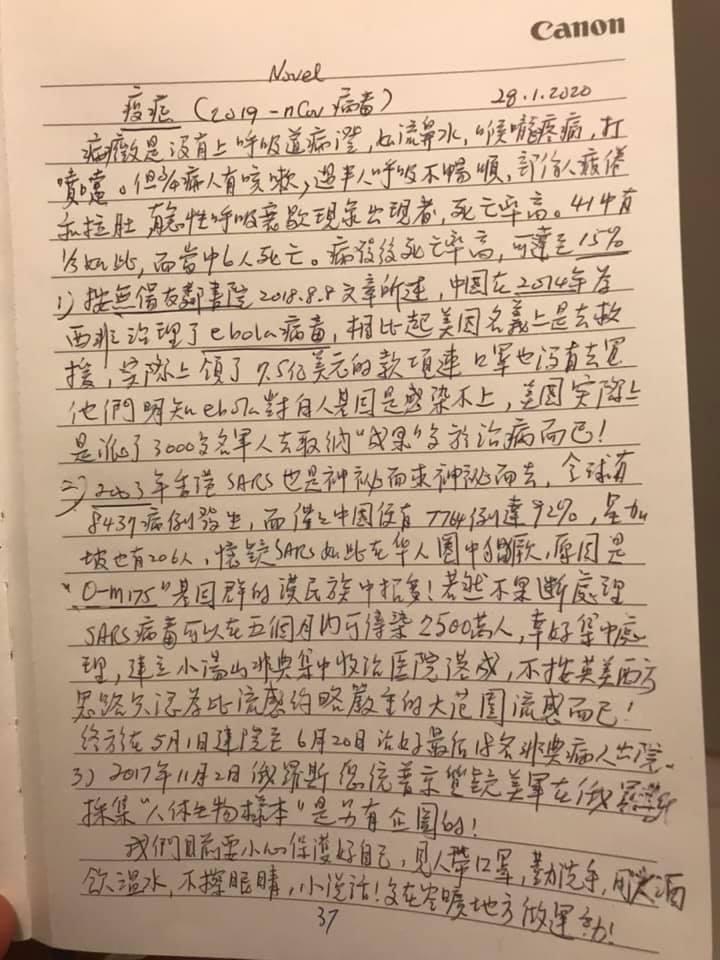 Canon
Novel
疫症 (2019-nCov 病毒) 28.1.2020
病癥是沒有上呼吸道病癥，如流鼻水，喉嚨疼痛，打
噴嚏。但3/4病人有咳嗽，過半人呼吸不暢順，部份人疲倦
和拉肚，急性呼吸衰歇現象出現者，死亡率高。41中有
1/3如此，而當中6人死亡。病發後死亡率高，可達至15%
1) 按無借友鄰書院2018.8.8文章所述，中国在2014年在
西非治理了ebola病毒，相比起美国名義上是去救
援，实际上領了7.5亿美元的款項連口罩也沒有去買
他們明知ebola對白人基因是感染不上，美国实际上
是派了3000多名軍人去取納"成果"多於治病而已！
二) 2003年香港SARS也是神祕而來神祕而去，全球有
8437病例發生，而僅之中国便有7764例達92%，星加
坡也有206人，懷疑SARS如此在华人圈中猖厥，原因是
"O-M175"基因群的漢民族中招多！若然不果断處理
SARS病毒可以在五個月內可傳染2500萬人，幸好集中處
理，建立小湯山非典集中收治医院落成，不按英美西方
思路只認為比流感約略嚴重的大范圍流感而已！
終於在5月1日建院至6月20日治好最后18名非典病人出院。
3) 2017年11月2日俄羅斯总统普京質疑美軍在俄
採集"人体生物樣本"是另有企圖的！
我們目前要小心保護好自己，見人帶口罩，勤洗手，用酒
飲溫水，不擦眼睛，小说话！多在空曠地方做運动！
37